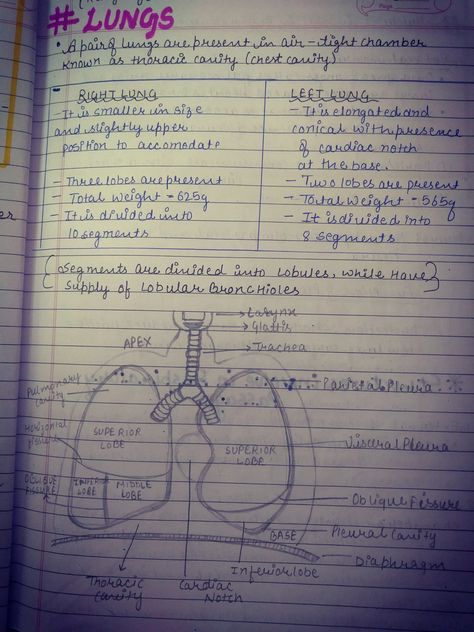 # LUNGS
• A pair of lungs are present in air-tight chamber
known as thoracic cavity (chest cavity)
RIGHT LUNG
- It is smaller in size
and slightly upper
position to accomodate
- Three lobes are present
- Total weight = 625g
- It is divided into
10 segments
LEFT LUNG
- It is elongated and
conical with presence
of cardiac notch
at the base.
- Two lobes are present
- Total weight = 565g
- It is divided into
8 segments
{Segments are divided into Lobules, while have}
Supply of Lobular Bronchioles
Larynx
Glottis
Trachea
APEX
Parietal Pleura
Pulmonary
cavity
Horizontal
fissure
SUPERIOR
LOBE
SUPERIOR
LOBE
Visceral Pleura
OBLIQUE
FISSURE
LOBE
MIDDLE
LOBE
Oblique Fissure
BASE
Pleural Cavity
Diaphragm
Inferior lobe
Thoracic
Cavity
Cardiac
Notch
Page